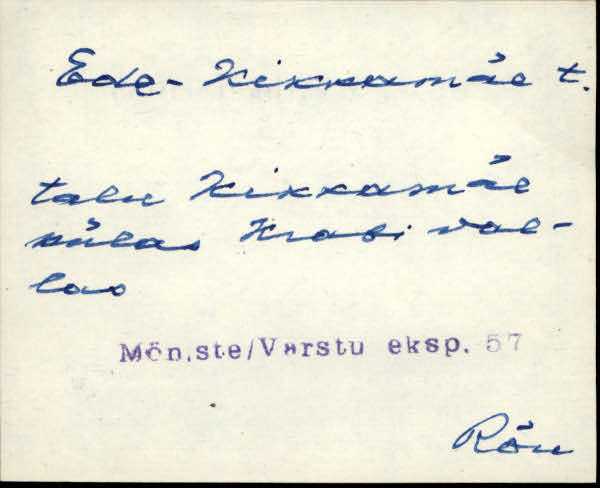 Ede-Kikkamäe t.
talu Kikkamäe
külas Krabi val-
las
Mõn.ste/Varstu eksp. 57
Rõu